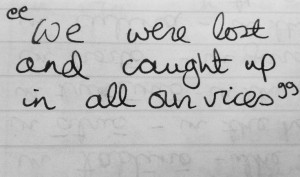 "We were lost
and caught up
in all our vices"